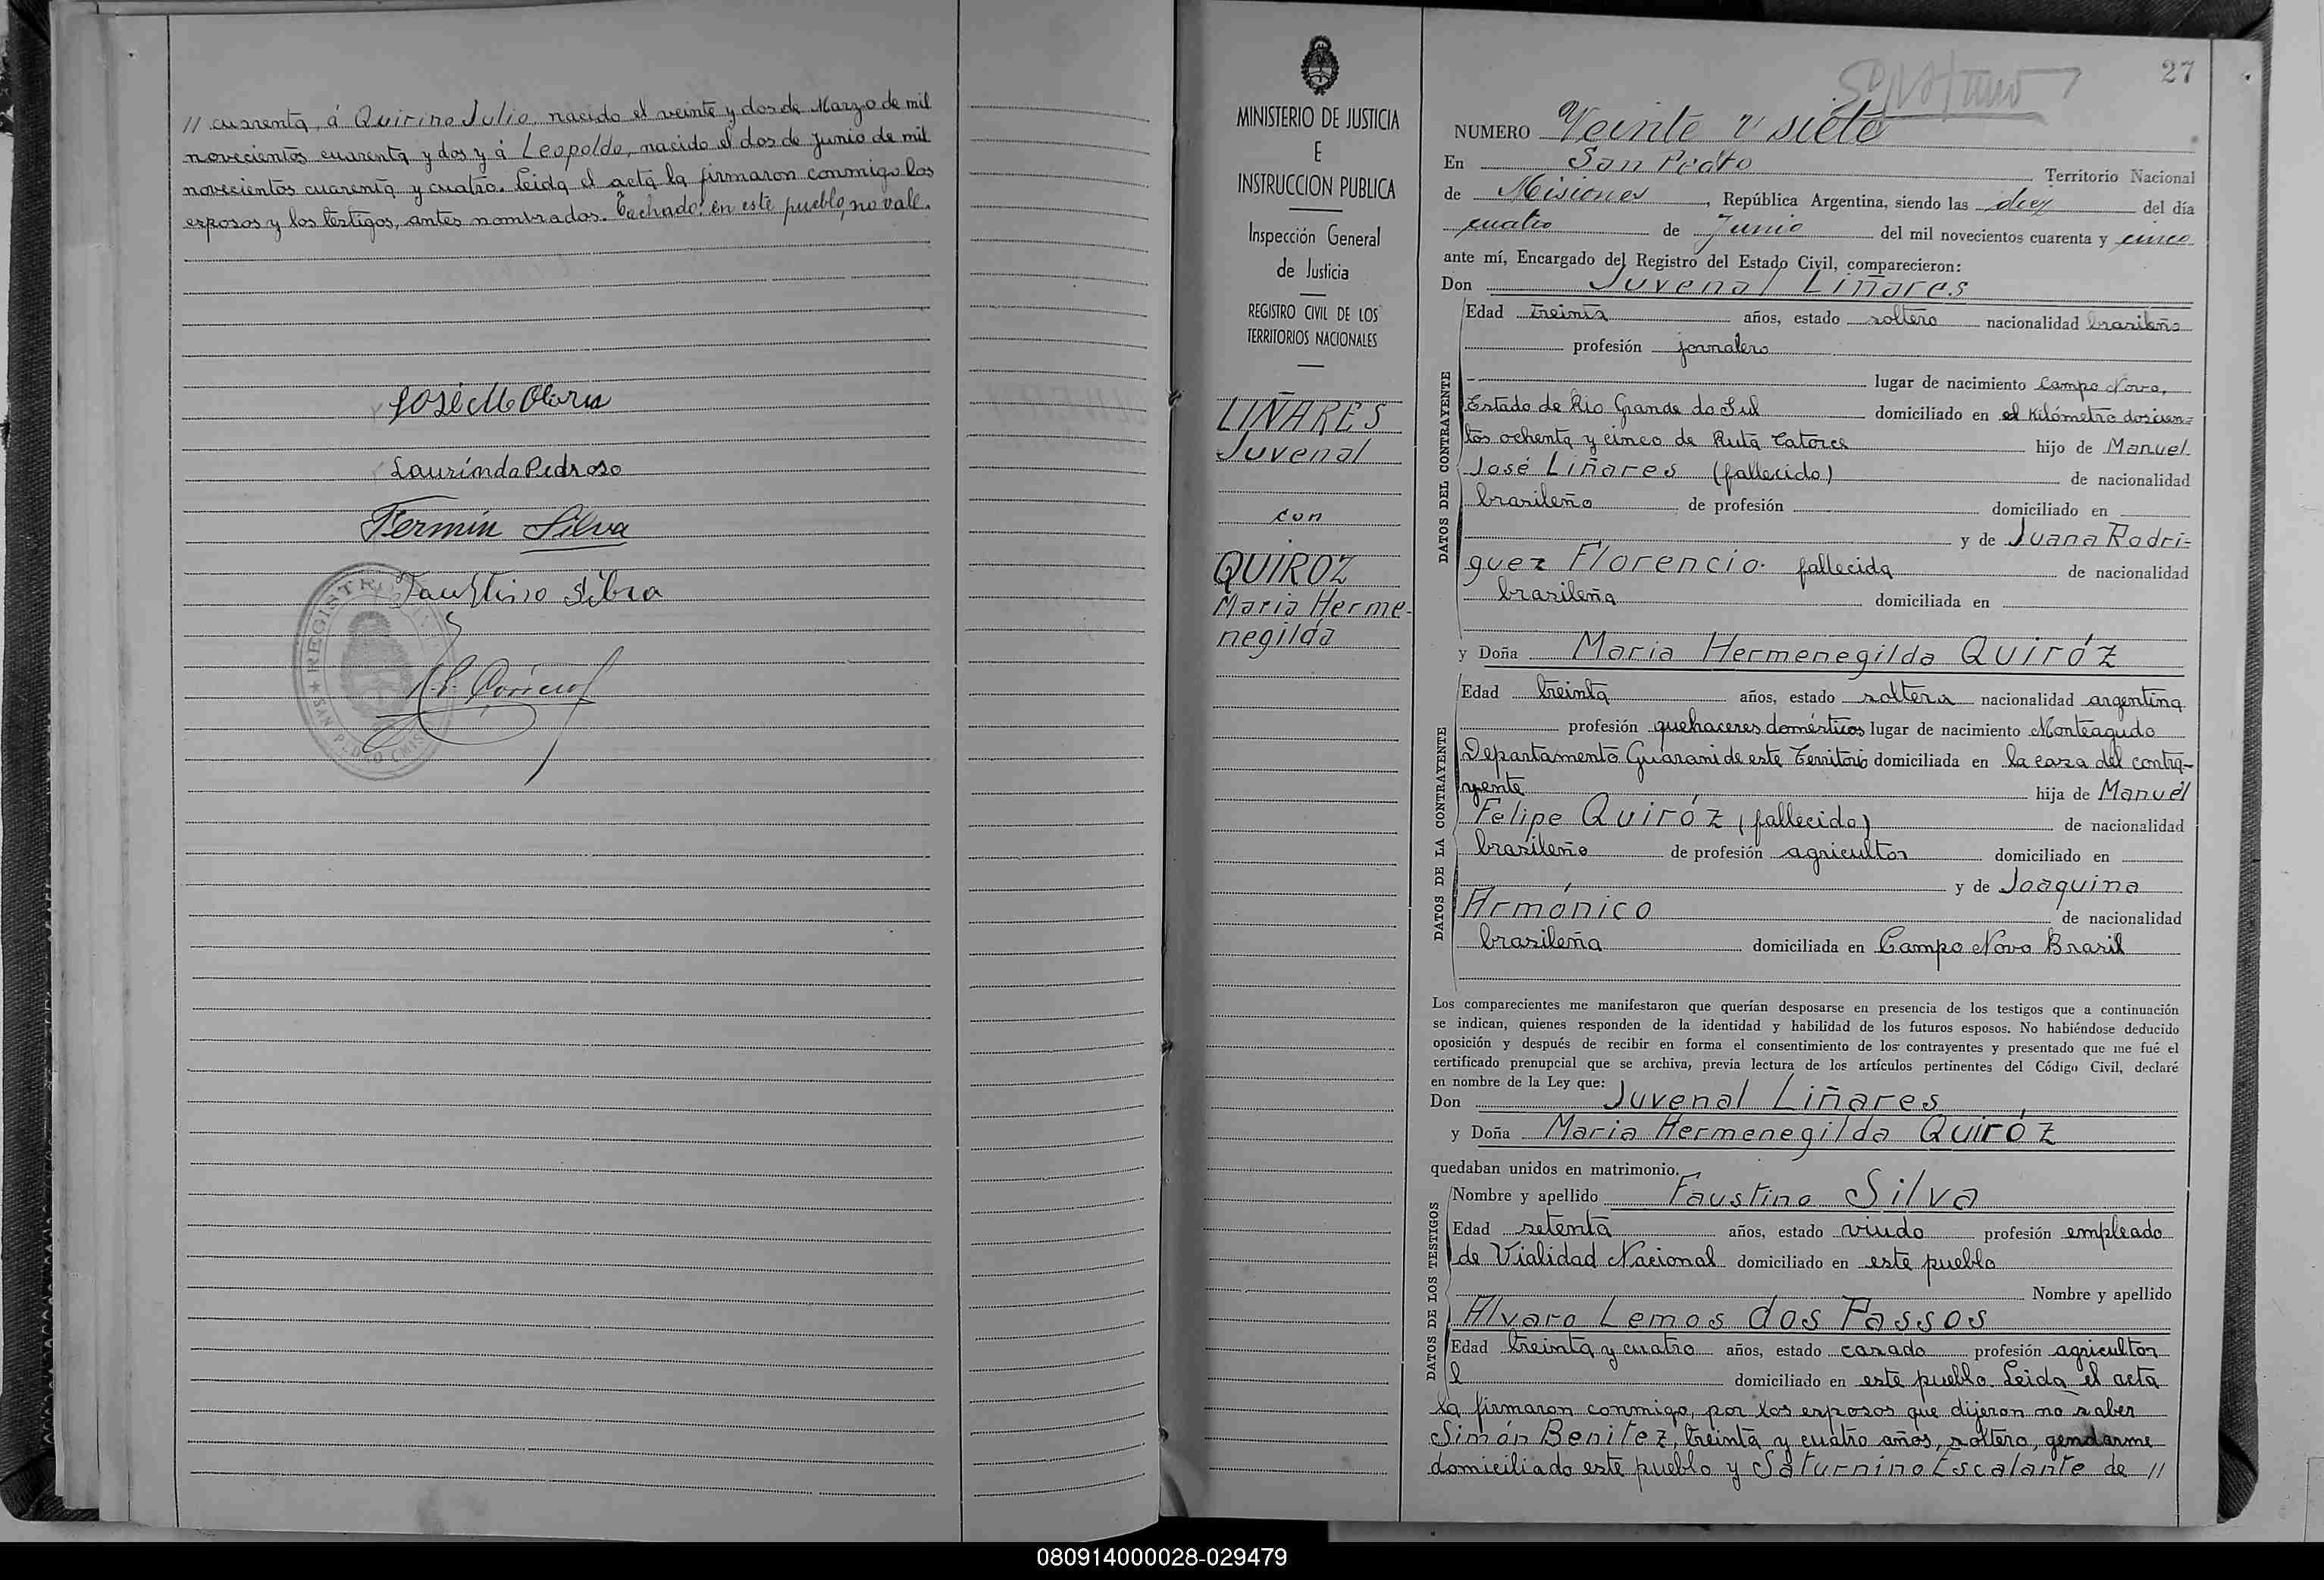 // cuarenta, á Quirino Julio, nacido el veinte y dos de Marzo de mil
novecientos cuarenta y dos y á Leopoldo, nacido el dos de Junio de mil
novecientos cuarenta y cuatro. Leida el acta la firmaron conmigo los
esposos y los testigos, antes nombrados. Tachado: en este pueblo, no vale.
José M
Laurinda Pedroso
Fermín Silva
Faustino Silva
REGISTR
SAN PEDRO (MIS
MINISTERIO DE JUSTICIA
E
INSTRUCCION PUBLICA
Inspección General
de Justicia
REGISTRO CIVIL DE LOS
TERRITORIOS NACIONALES
LIÑARES
Juvenal
con
QUIROZ
Maria Herme-
negilda
27
NUMERO Veinte y siete
En San Pedro Territorio Nacional
de Misiones, República Argentina, siendo las diez del día
cuatro de Junio del mil novecientos cuarenta y cinco
ante mí, Encargado del Registro del Estado Civil, comparecieron:
Don Juvenal Liñares
DATOS DEL CONTRAYENTE
Edad treinta años, estado soltero nacionalidad brasileño
profesión jornalero
lugar de nacimiento Campo Novo,
Estado de Rio Grande do Sul domiciliado en el Kilómetro doscien-
tos ochenta y cinco de Ruta Catorce hijo de Manuel
José Liñares (fallecido) de nacionalidad
brasileño de profesión domiciliado en
y de Juana Rodri-
guez Florencio. fallecida de nacionalidad
brasileña domiciliada en
y Doña Maria Hermenegilda Quiróz
DATOS DE LA CONTRAYENTE
Edad treinta años, estado soltera nacionalidad argentina
profesión quehaceres domésticos lugar de nacimiento Monteagudo
Departamento Guarani de este Territorio domiciliada en la casa del contra-
yente hija de Manuel
Felipe Quiróz (fallecido) de nacionalidad
brasileño de profesión agricultor domiciliado en
y de Joaquina
Armónico de nacionalidad
brasileña domiciliada en Campo Novo Brasil
Los comparecientes me manifestaron que querían desposarse en presencia de los testigos que a continuación
se indican, quienes responden de la identidad y habilidad de los futuros esposos. No habiéndose deducido
oposición y después de recibir en forma el consentimiento de los contrayentes y presentado que me fué el
certificado prenupcial que se archiva, previa lectura de los artículos pertinentes del Código Civil, declaré
en nombre de la Ley que:
Don Juvenal Liñares
y Doña Maria Hermenegilda Quiróz
quedaban unidos en matrimonio.
DATOS DE LOS TESTIGOS
Nombre y apellido Faustino Silva
Edad setenta años, estado viudo profesión empleado
de Vialidad Nacional domiciliado en este pueblo
Nombre y apellido
Alvaro Lemos dos Passos
Edad treinta y cuatro años, estado casado profesión agricultor
domiciliado en este pueblo. Leida el acta
la firmaron conmigo, por los esposos que dijeron no saber
Simón Benitez, treinta y cuatro años, soltero, gendarme
domiciliado este pueblo y Saturnino Escalante de //
080914000028-029479